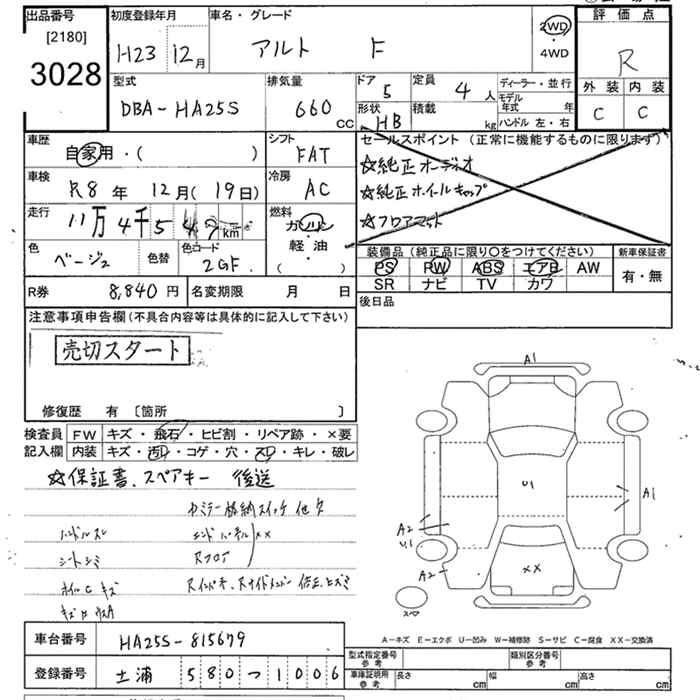 出品番号
[2180]
3028
初度登録年月
H23 12月
車名・グレード
アルト F
2WD
・
4WD
評価点
R
外装 内装
C C
型式
DBA-HA25S
排気量
660 CC
ドア
5
定員
4人
形状
HB
積載
kg
ディーラー・並行
モデル年式 年
ハンドル 左・右
車歴
自家用・( )
シフト
FAT
車検
R8年 12月(19日)
冷房
AC
走行
11万4千5
km
燃料
ガソリン
軽・油
・( )
色
ベージュ
色替
色コード
2GF
セールスポイント(正常に機能するものに限ります)
☆純正オーディオ
☆純正ホイルキャップ
☆フロアマット
装備品(純正品に限り〇をつけてください)
新車保証書
PS PW ABS エアB AW
SR ナビ TV カワ
有・無
R券 8,840円
名変期限 月 日
後日品
注意事項申告欄(不具合内容等は具体的に記入して下さい)
売切スタート
修復歴 有 〔箇所 〕
検査員記入欄
FW キズ・飛石・ヒビ割・リペア跡・×要
内装 キズ・汚レ・コゲ・穴・スレ・キレ・破レ
☆保証書、スペアキー 後送
ハンドルスレ
シートシミ
ホイルC キズ
××
A1
U1
A1
A2
U1
A2
××
スペア
A-キズ E-エクボ U-凹み W-補修跡 S-サビ C-腐食 XX-交換済
車台番号 HA25S-815679
登録番号 土浦 580 つ 1006
型式指定番号 参考
類別区分番号 参考
車庫証明用 参考
長さ cm 幅 cm 高さ cm